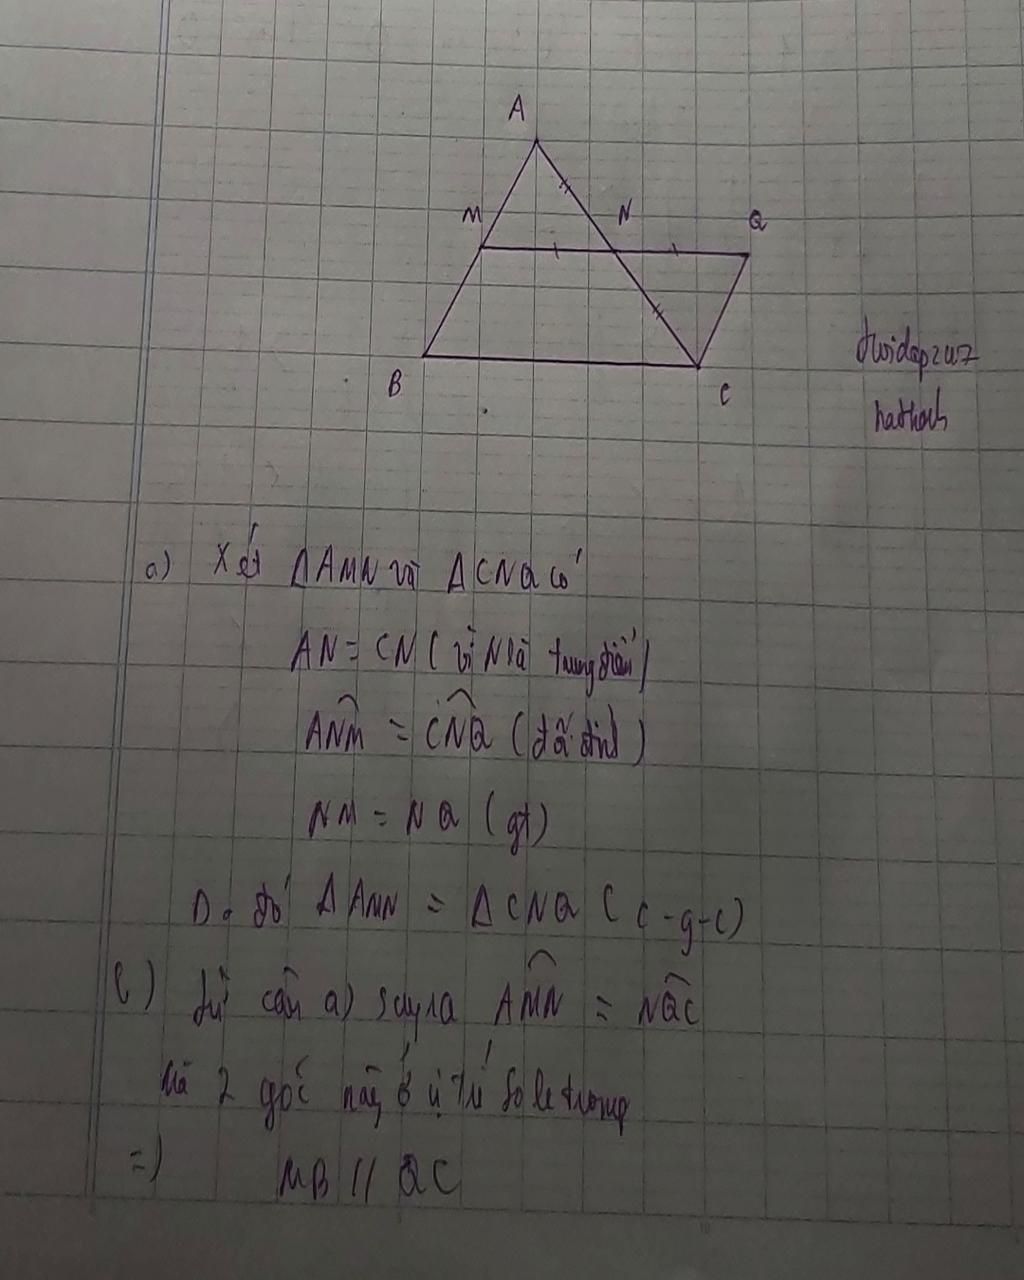 A
M
N
Q
B
C
hathach
a) Xét ΔAMN và ΔCNQ có
AN = CN (vì N là trung điểm)
ANM = CNQ (đối đỉnh)
NM = NQ (gt)
Do đó ΔAMN = ΔCNQ (c-g-c)
từ câu a) suy ra AMN = NQC
Mà 2 góc này ở vị trí so le trong
=) MB // QC